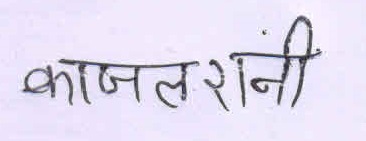 काजल रानी